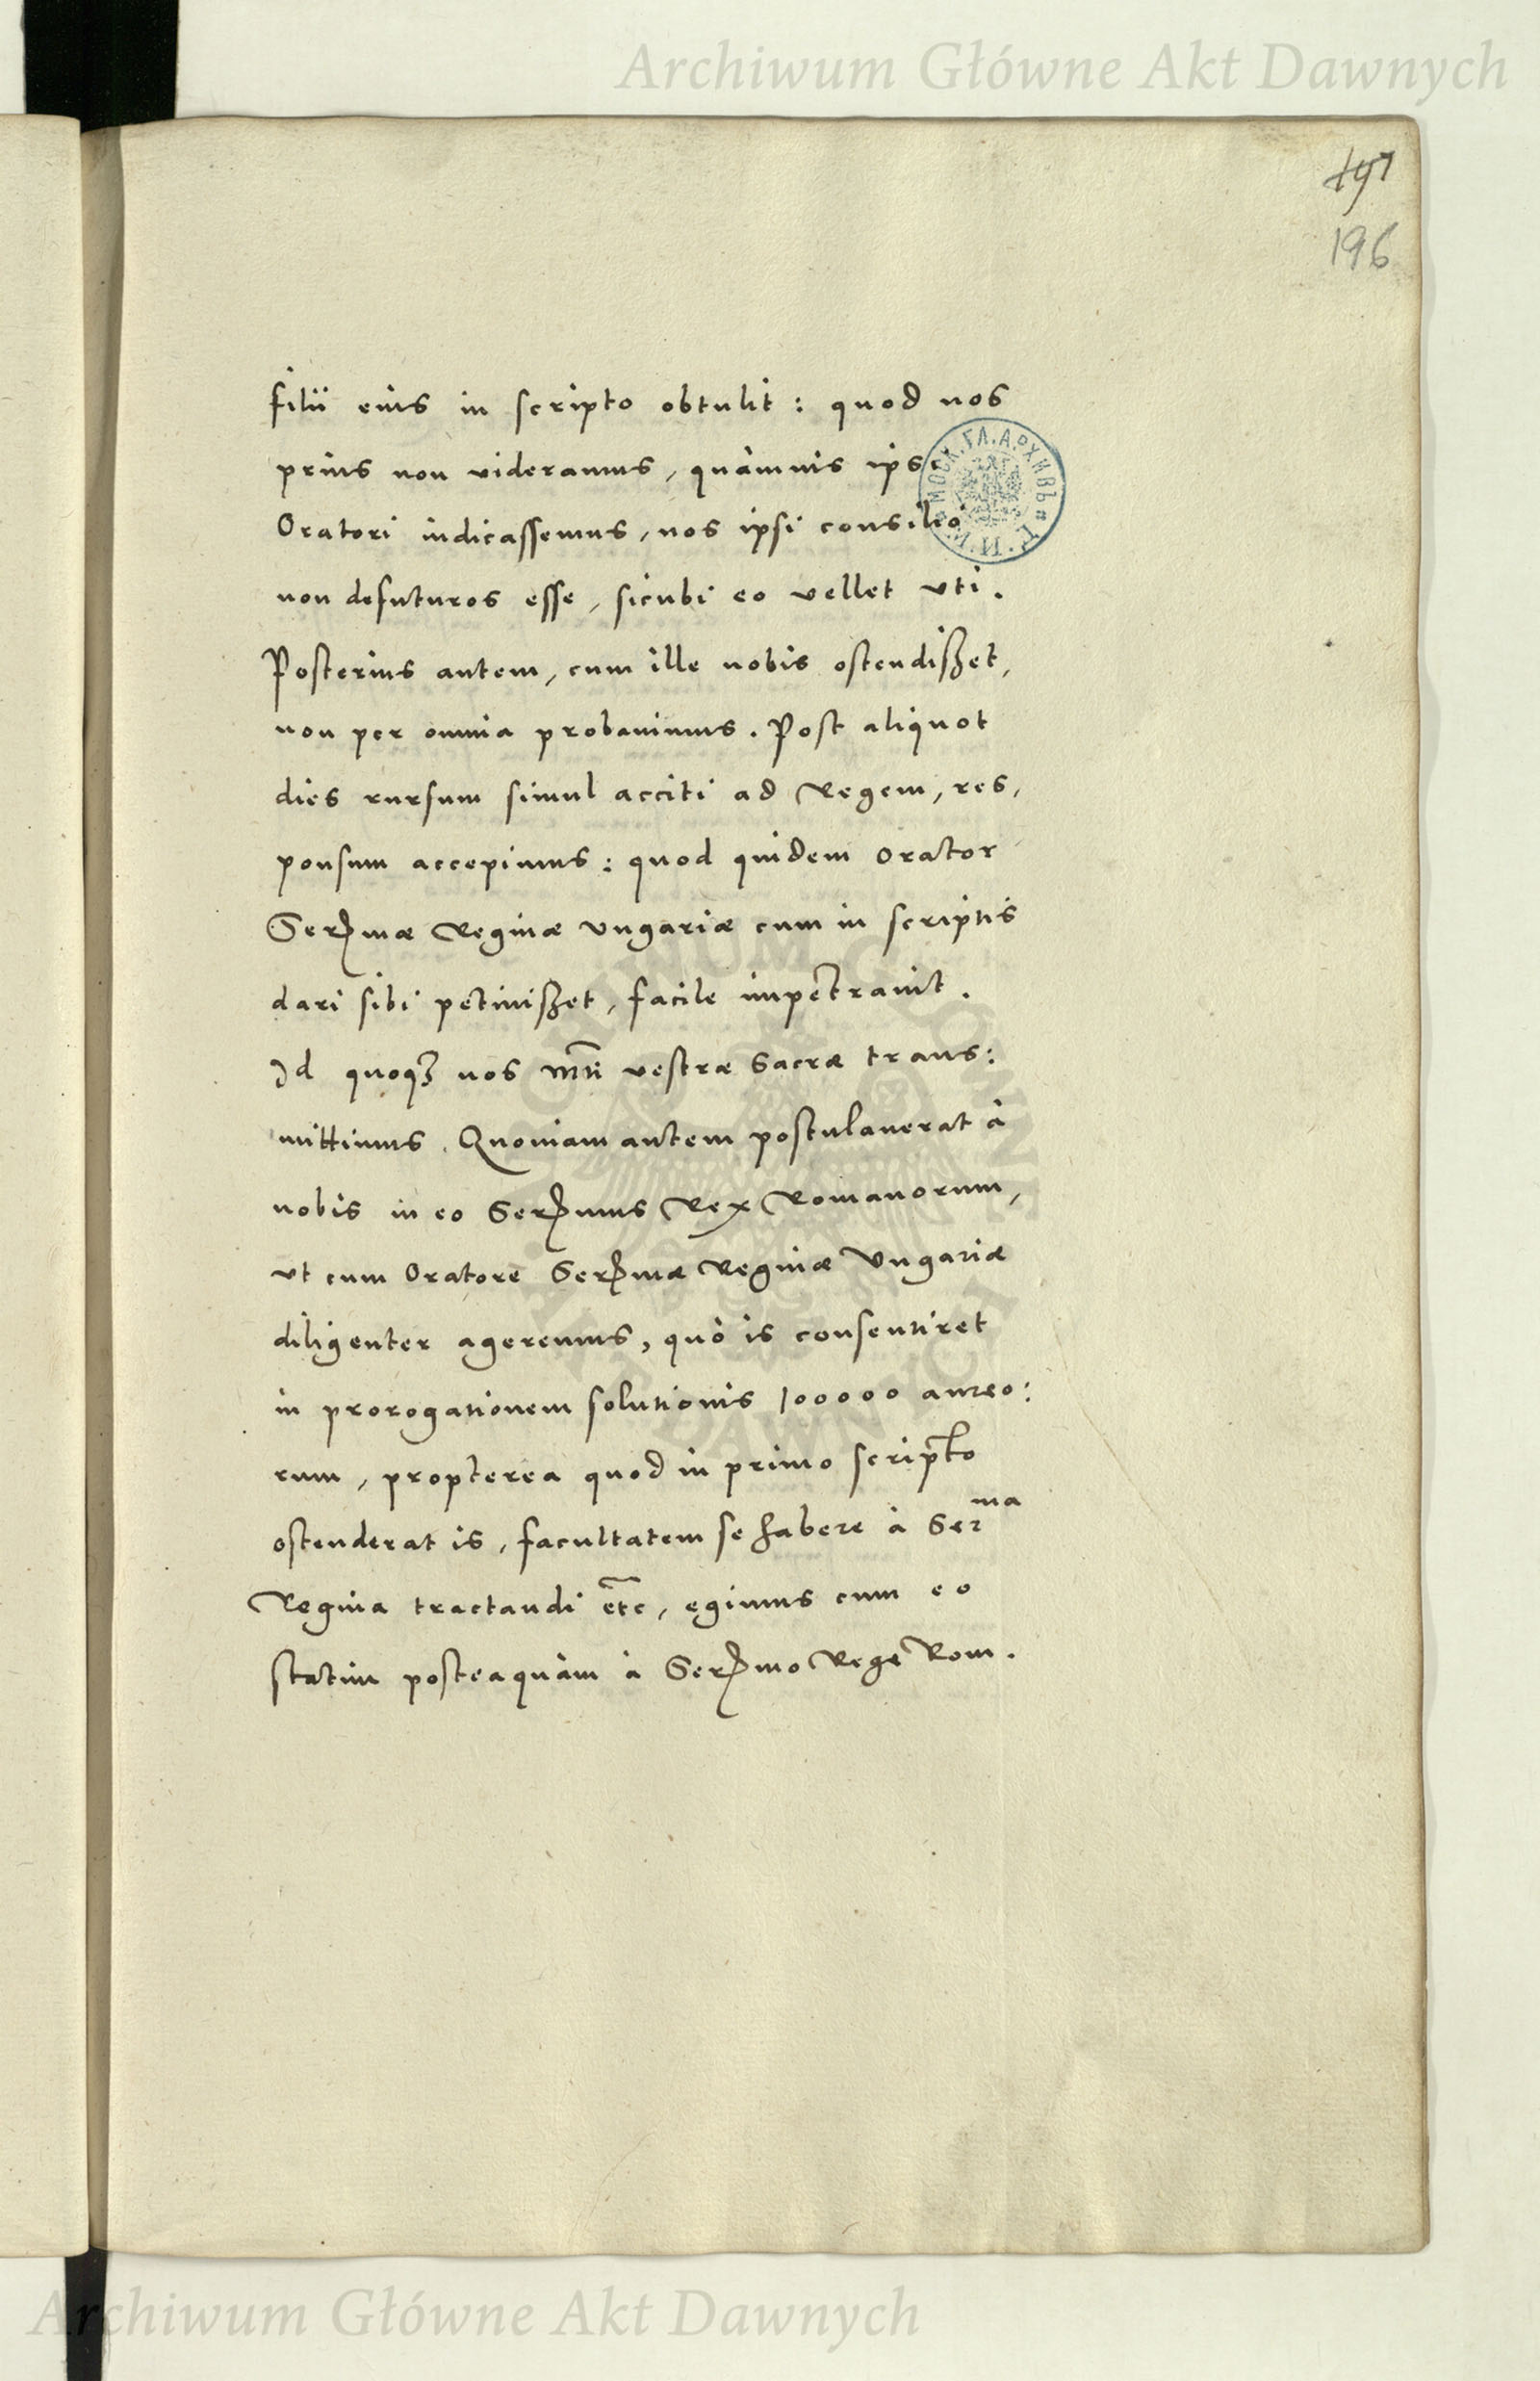 Archiwum Główne Akt Dawnych
196
filii eius in scripto obtulit : quod nos
prius non videramus, quàmuis ipse
Oratori indicassemus, nos ipsi consilio
non defuturos esse, sicubi eo vellet vti.
Posterius autem, cum ille nobis ostendisset,
non per omnia probauimus. Post aliquot
dies rursum simul acciti ad Regem, res,
ponsum accepimus : quod quidem Orator
Serᵐmæ Reginæ Vngariæ cum in scriptis
dari sibi petiuisset, facile impetrauit.
Id quoqꝫ nos Mti vestræ Sacræ trans:
mittimus. Quoniam autem postulauerat à
nobis in eo Serᵐmus Rex Romanorum,
vt cum Oratore Serᵐmæ Reginæ Vngariæ
diligenter ageremus, quò is consentiret
in prorogationem solutionis 100000 aureo:
rum, propterea quod in primo scripto
ostenderat is, facultatem se habere à Serᵐᵃ
Regina tractandi etc, egimus cum eo
statim posteaquàm à Serᵐmo Rege Rom.
Archiwum Główne Akt Dawnych